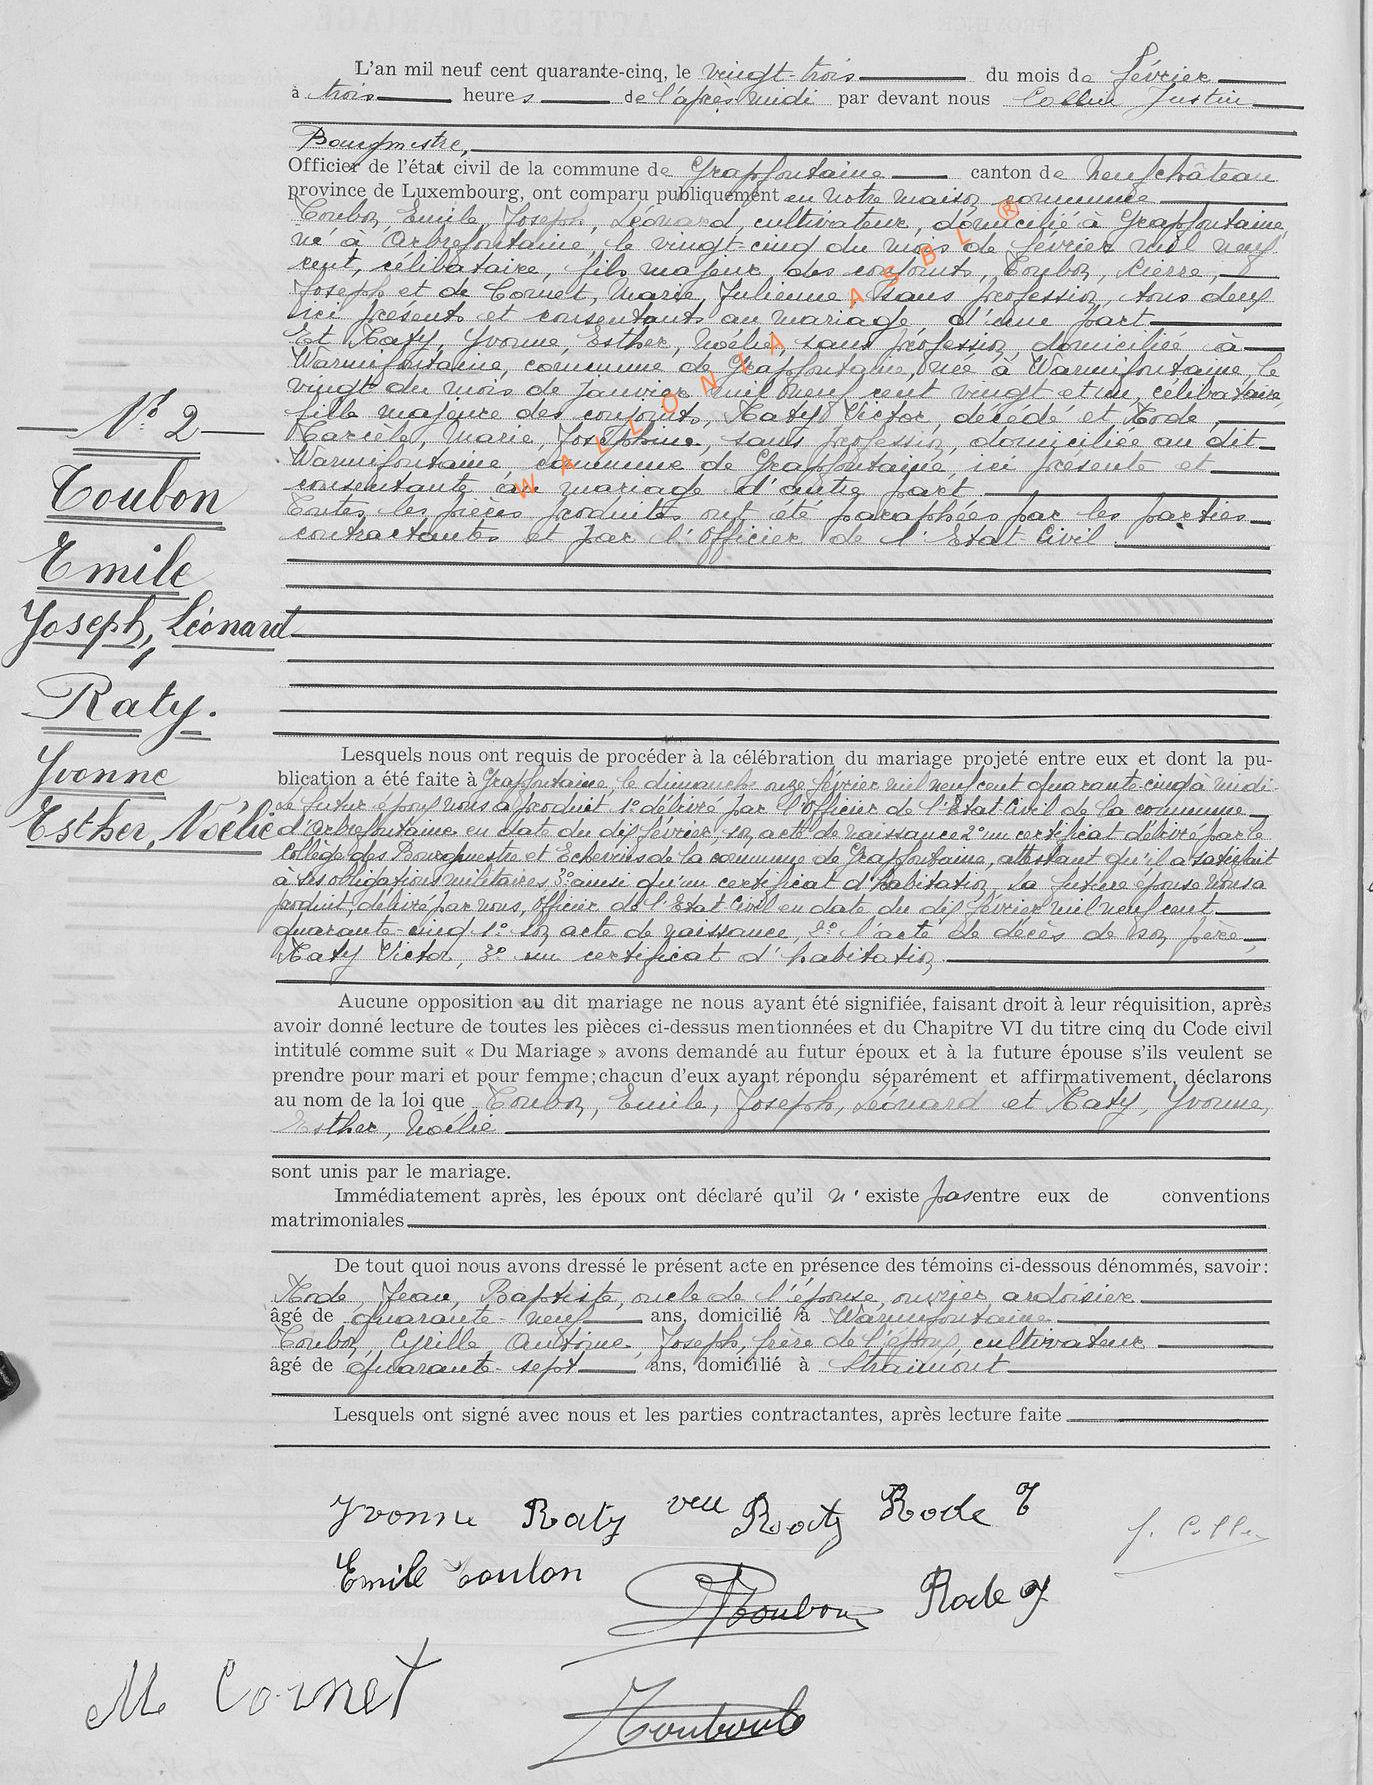 L'an mil neuf cent quarante-cinq, le vingt-trois du mois de février
à trois heures de l'après midi par devant nous Collin Justin
Bourgmestre,
Officier de l'état civil de la commune de Grapfontaine canton de Neufchâteau
province de Luxembourg, ont comparu publiquement en notre maison commune
Toubon, Emile, Joseph, Léonard, cultivateur, domicilié à Grapfontaine,
né à Arbrefontaine, le vingt-cinq du mois de février mil neuf
cent, célibataire, fils majeur des conjoints, Toubon, Pierre,
Joseph et de Cornet, Marie, Julienne, sans profession, tous deux
ici présents et consentants au mariage, d'une part.
Et Raty, Yvonne, Esther, Noélie, sans profession, domiciliée à
Warmifontaine, commune de Grapfontaine, née à Warmifontaine, le
vingt du mois de janvier mil neuf cent vingt et un, célibataire,
fille majeure des conjoints, Raty Victor, décédé et Rode,
Marcèle, Marie, Joséphine, sans profession, domiciliée au dit
Warmifontaine, commune de Grapfontaine, ici présente et
consentante au mariage d'autre part
Toutes les pièces produites ont été paraphées par les parties
contractantes et par l'Officier de l'Etat Civil.
WALLONIA ASBL ®
N° 2
Toubon
Emile
Joseph, Léonard
Raty.
Yvonne
Esther, Noélie
Lesquels nous ont requis de procéder à la célébration du mariage projeté entre eux et dont la pu-
blication a été faite à Grapfontaine, le dimanche onze février mil neuf cent quarante-cinq à midi.
Le futur époux nous a produit 1° délivré par l'Officier de l'Etat Civil de la commune
d'Arbrefontaine en date du dix février, son acte de naissance 2° un certificat délivré par le
Collège des Bourgmestre et Echevins de la commune de Grapfontaine, attestant qu'il a satisfait
à ses obligations militaires 3° ainsi qu'un certificat d'habitation. La future épouse nous a
produit, délivré par nous, Officier de l'Etat Civil en date du dix février mil neuf cent
quarante-cinq 1° son acte de naissance, 2° l'acte de décès de son père,
Raty Victor, 3° un certificat d'habitation.
Aucune opposition au dit mariage ne nous ayant été signifiée, faisant droit à leur réquisition, après
avoir donné lecture de toutes les pièces ci-dessus mentionnées et du Chapitre VI du titre cinq du Code civil
intitulé comme suit « Du Mariage » avons demandé au futur époux et à la future épouse s'ils veulent se
prendre pour mari et pour femme; chacun d'eux ayant répondu séparément et affirmativement, déclarons
au nom de la loi que Toubon, Emile, Joseph, Léonard et Raty, Yvonne,
Esther, Noélie
sont unis par le mariage.
Immédiatement après, les époux ont déclaré qu'il n'existe pas entre eux de conventions
matrimoniales
De tout quoi nous avons dressé le présent acte en présence des témoins ci-dessous dénommés, savoir:
Rode, Jean, Baptiste, oncle de l'épouse, ouvrier ardoisier
âgé de quarante-neuf ans, domicilié à Warmifontaine
Toubon, Cyrille, Antoine, Joseph, frère de l'époux, cultivateur
âgé de quarante-sept ans, domicilié à Straimont
Lesquels ont signé avec nous et les parties contractantes, après lecture faite
Yvonne Raty veu Raty Rode
J. Collin
Emile Toubon
Toubon
Rode J
M Cornet